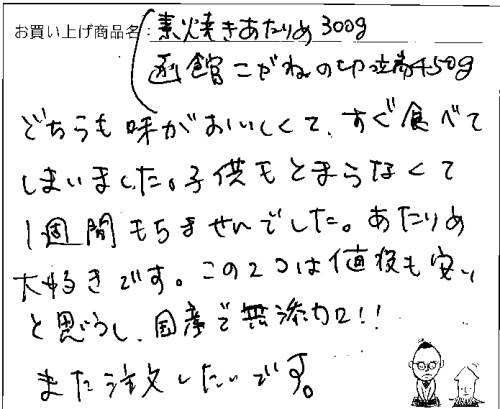 お買い上げ商品名: 素焼きあたりめ 300g
函館こがねの切込 450g
どちらも味がおいしくて、すぐ食べて
しまいました。子供もとまらなくて
1週間もちませんでした。あたりめ
大好きです。この2つは値段も安い
と思うし、国産で無添加!!
また注文したいです。